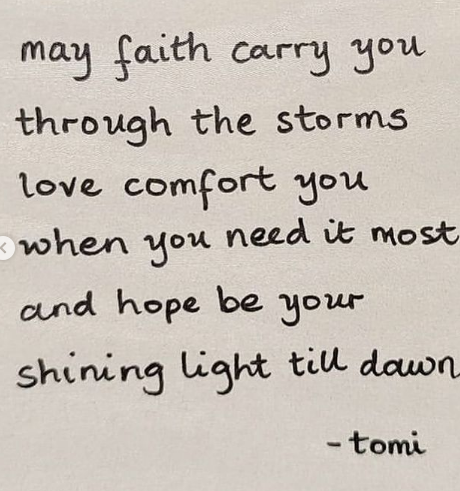 may faith carry you
through the storms
love comfort you
when you need it most
and hope be your
shining light till dawn
- tomi